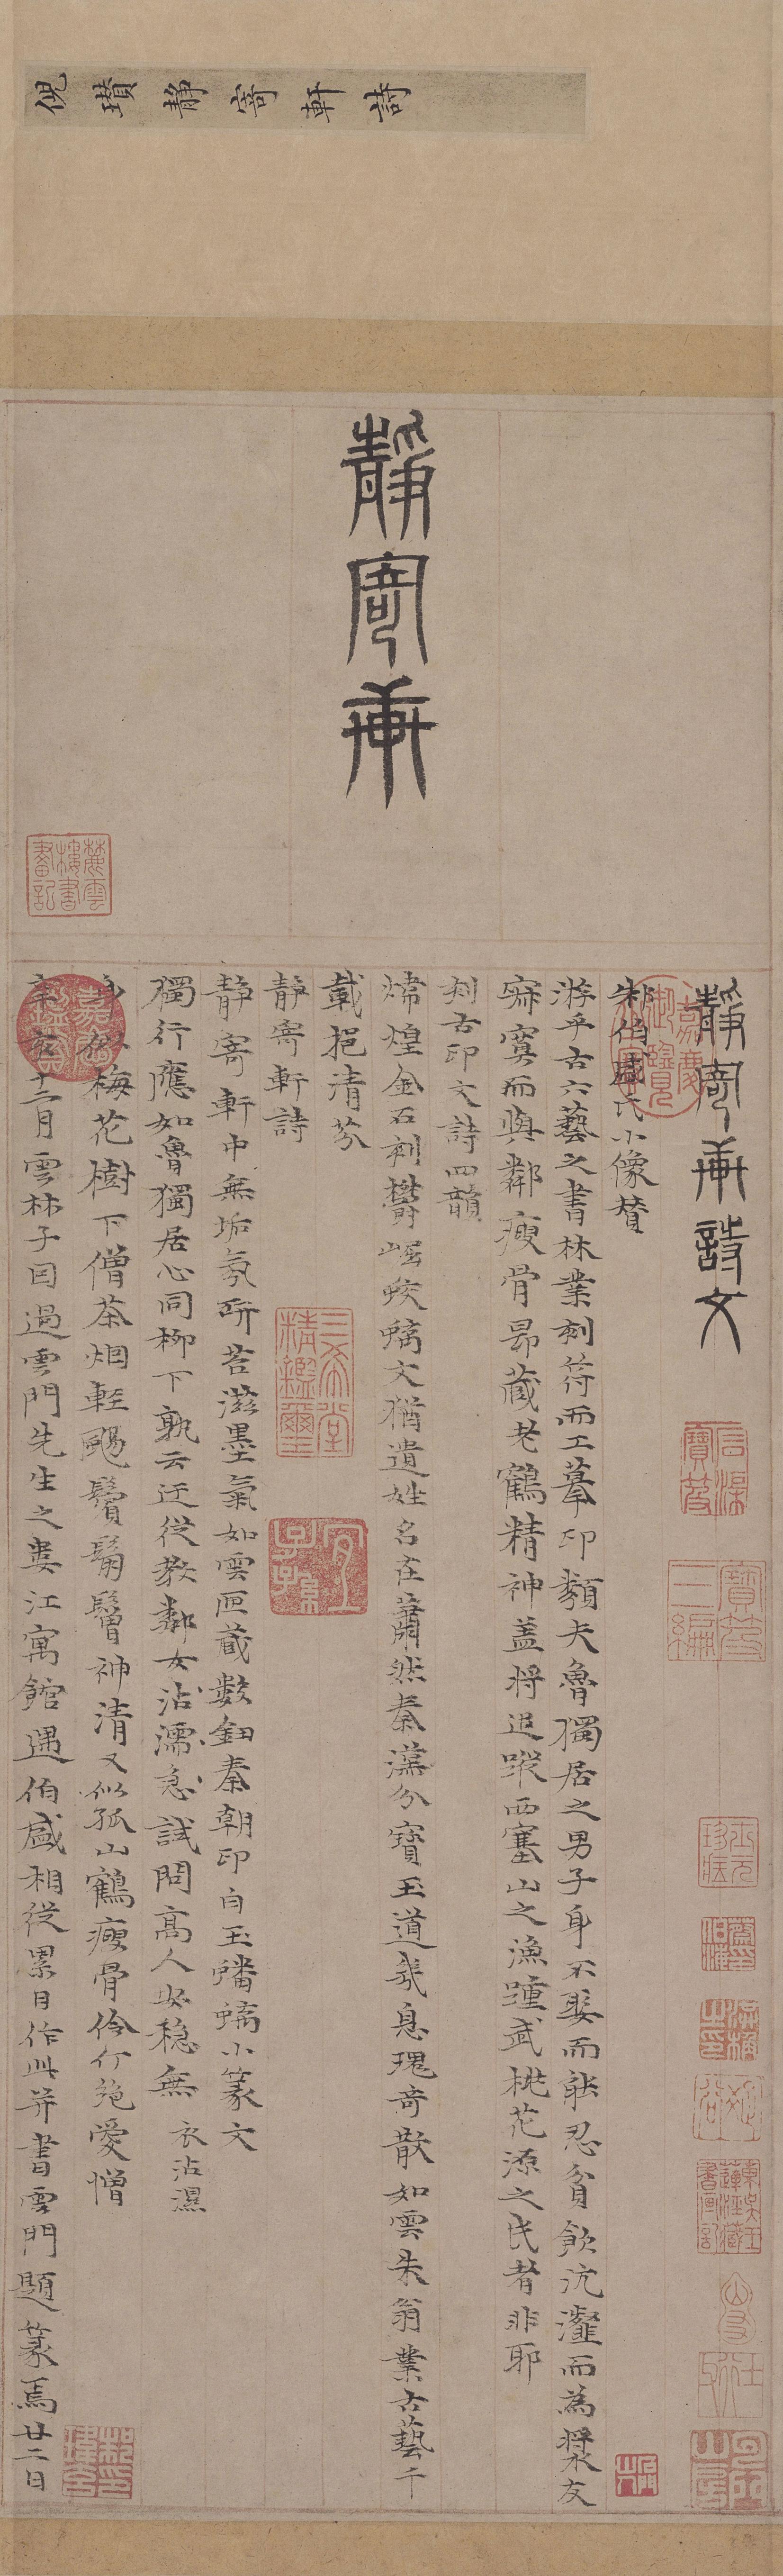 倪瓚靜寄軒詩
靜寄軒
靜寄軒詩文
朱伯盛氏小像贊
游乎古六藝之書林業刻符而工摹印類夫魯獨居之男子身不娶而能忍貧飲沆瀣而為漿友
寂寞而與鄰瘦骨昂藏老鶴精神蓋將追蹤西塞山之漁踵武桃花源之民者非耶
刻古印文詩四韻
煒煌金石刻欝崛蛟螭文猶遺姓名在蕭然秦漢分寶玉道幾息瑰奇散如雲朱翁業古藝千
載挹清芬
靜寄軒詩
靜寄軒中無垢氛研苔滋墨氣如雲匣藏數鈕秦朝印白玉蟠螭小篆文
獨行應如魯獨居心同柳下孰云迂從教鄰女沾濡急試問高人安穩無 衣沾濕
身似梅花樹下僧茶烟輕颺鬢鬅鬙神清又似孤山鶴瘦骨伶仃絶愛憎
辛亥十二月雲林子因過雲門先生之婁江寓館遇伯盛相從累日作此并書雲門題篆焉廿二日
三希堂精鑑璽
宜子孫
嘉慶御覽之寶
嘉慶鑑賞
石渠寶笈
寶笈三編
麓雲樓書畫記